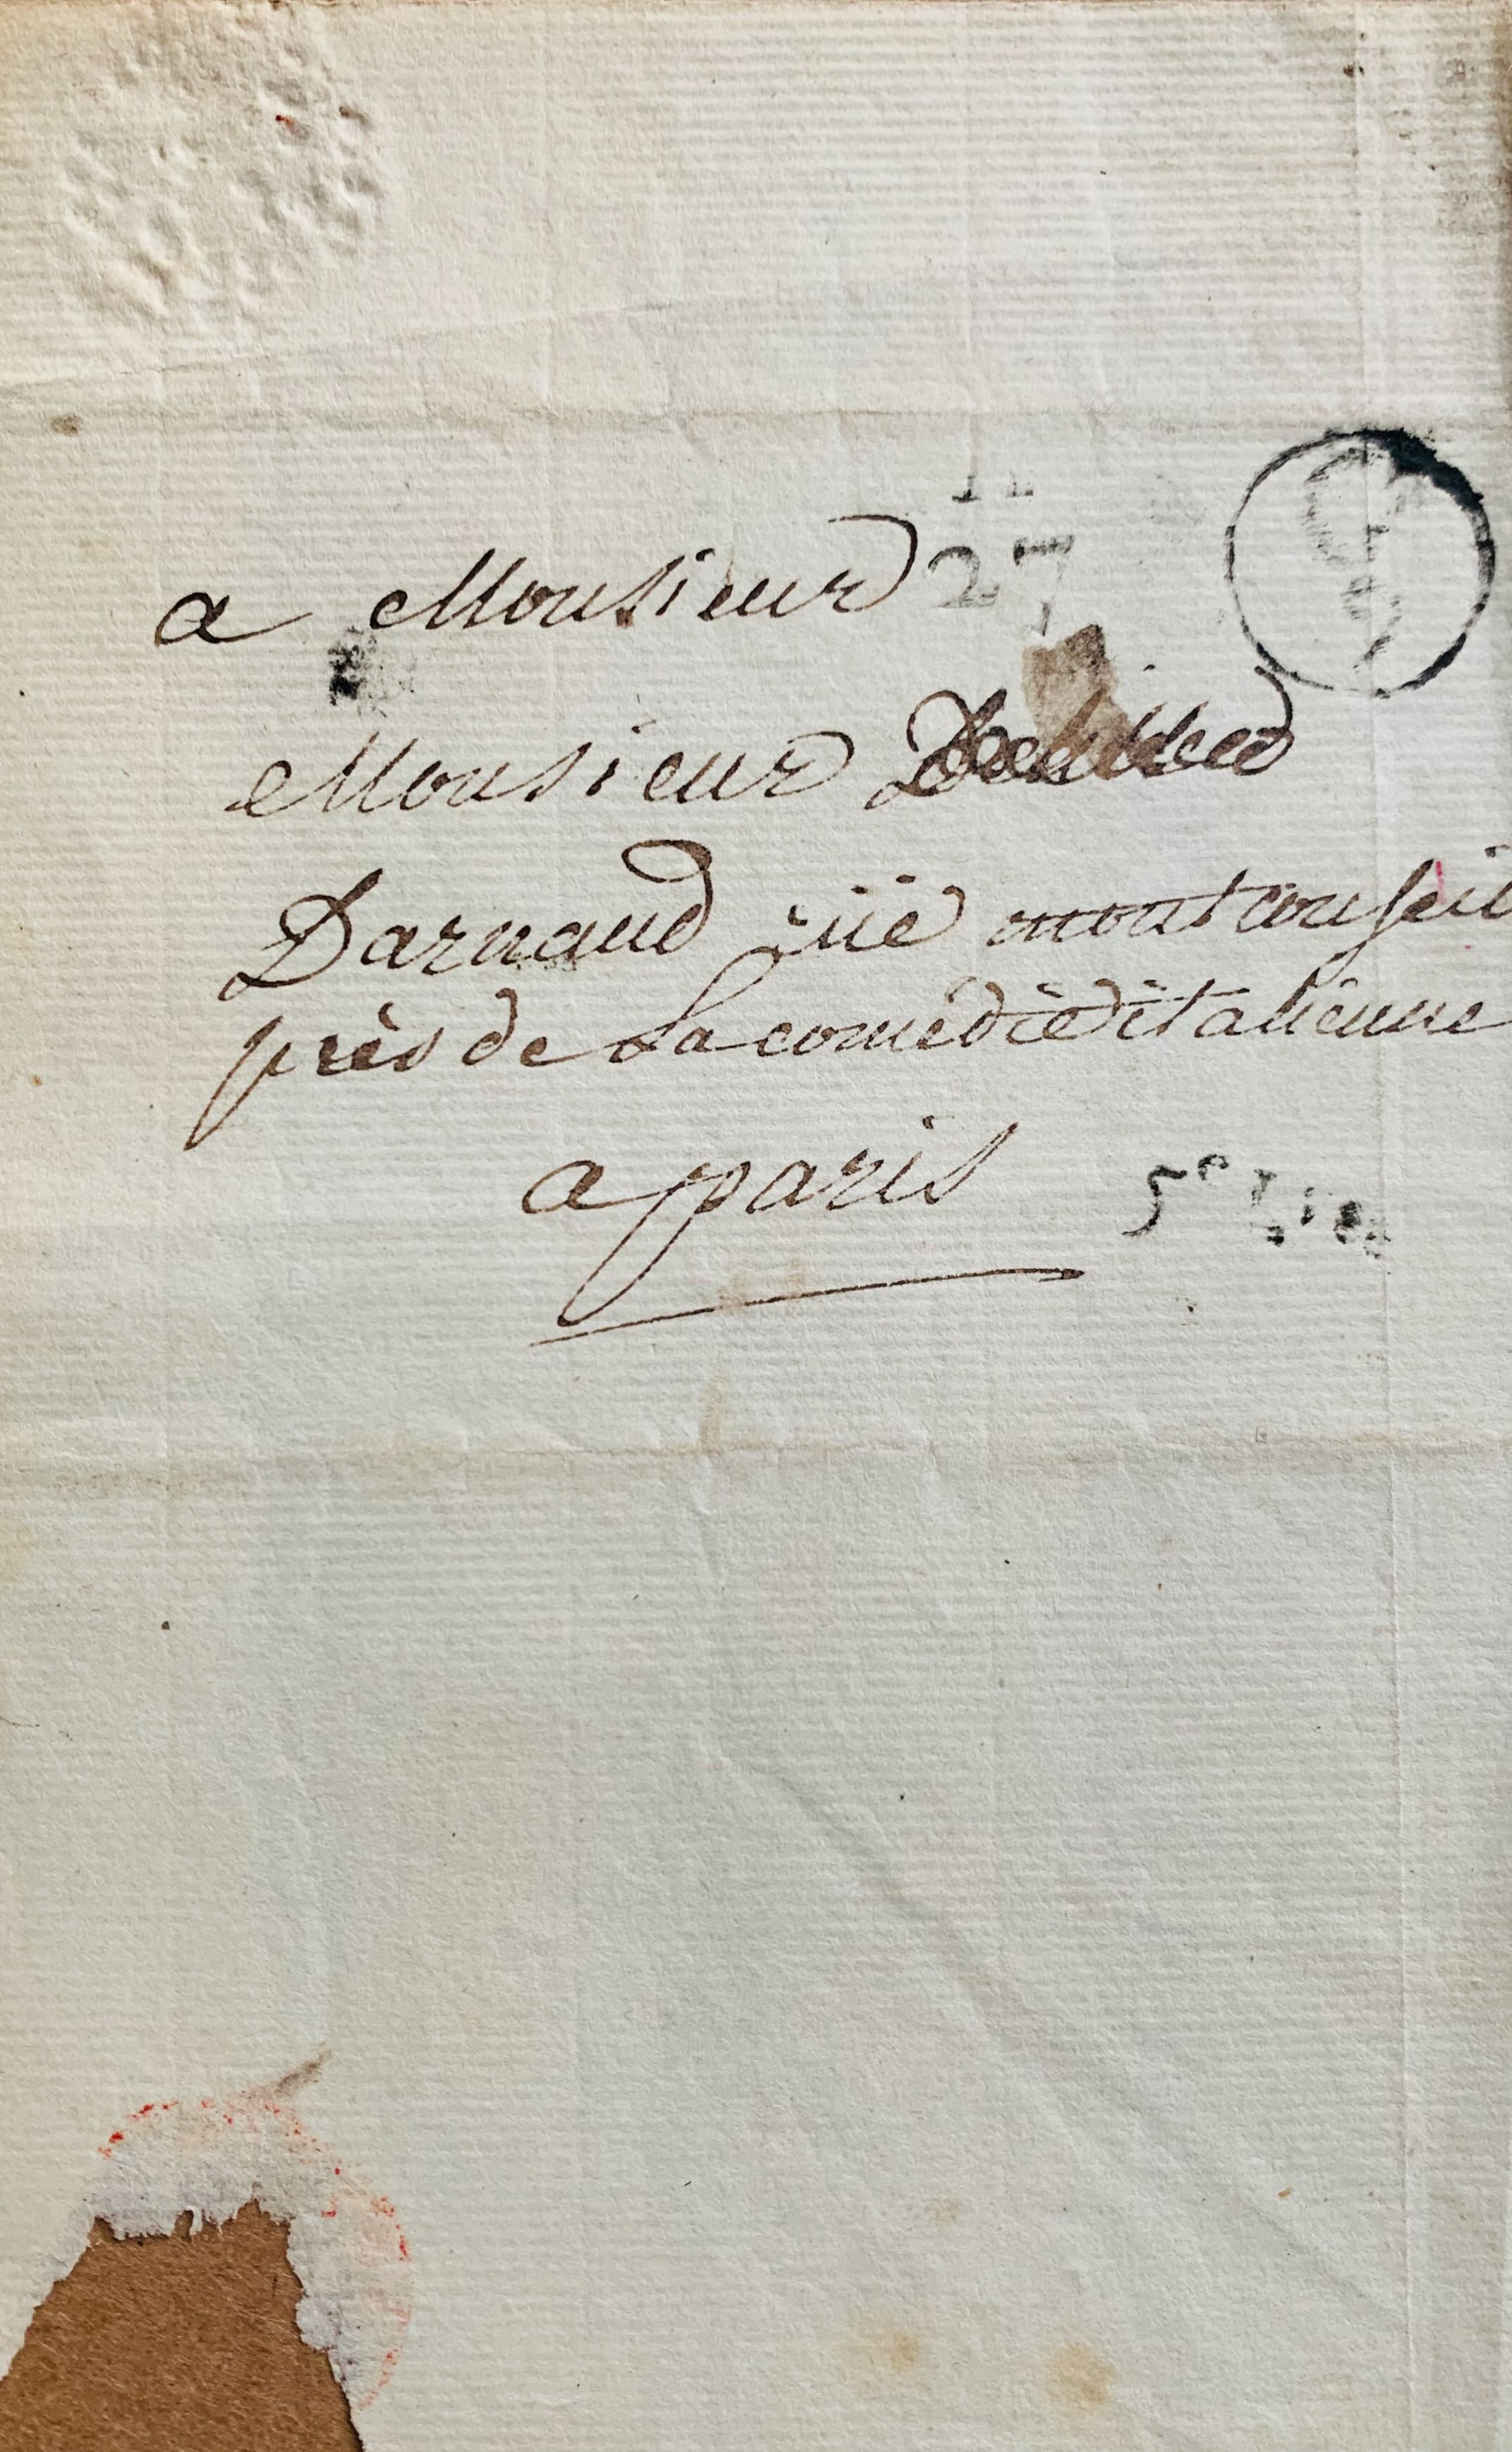 27
a Monsieur
Monsieur
Darnaud rüe montconseil
près de La comédie italienne
a paris
5e